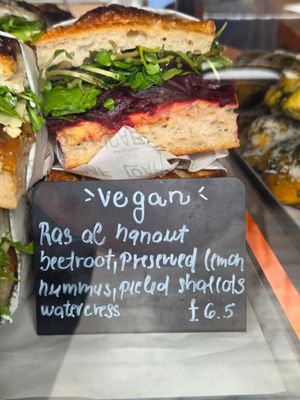 vegan
Ras el hanout
beetroot, preserved lemon
hummus, pickled shallots
watercress £6.5